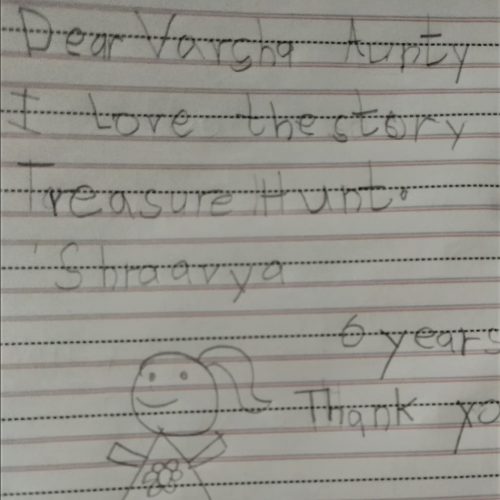 Dear Varsha Aunty
I Love the story
Treasure Hunt.
Shraavya
6 years
Thank yo